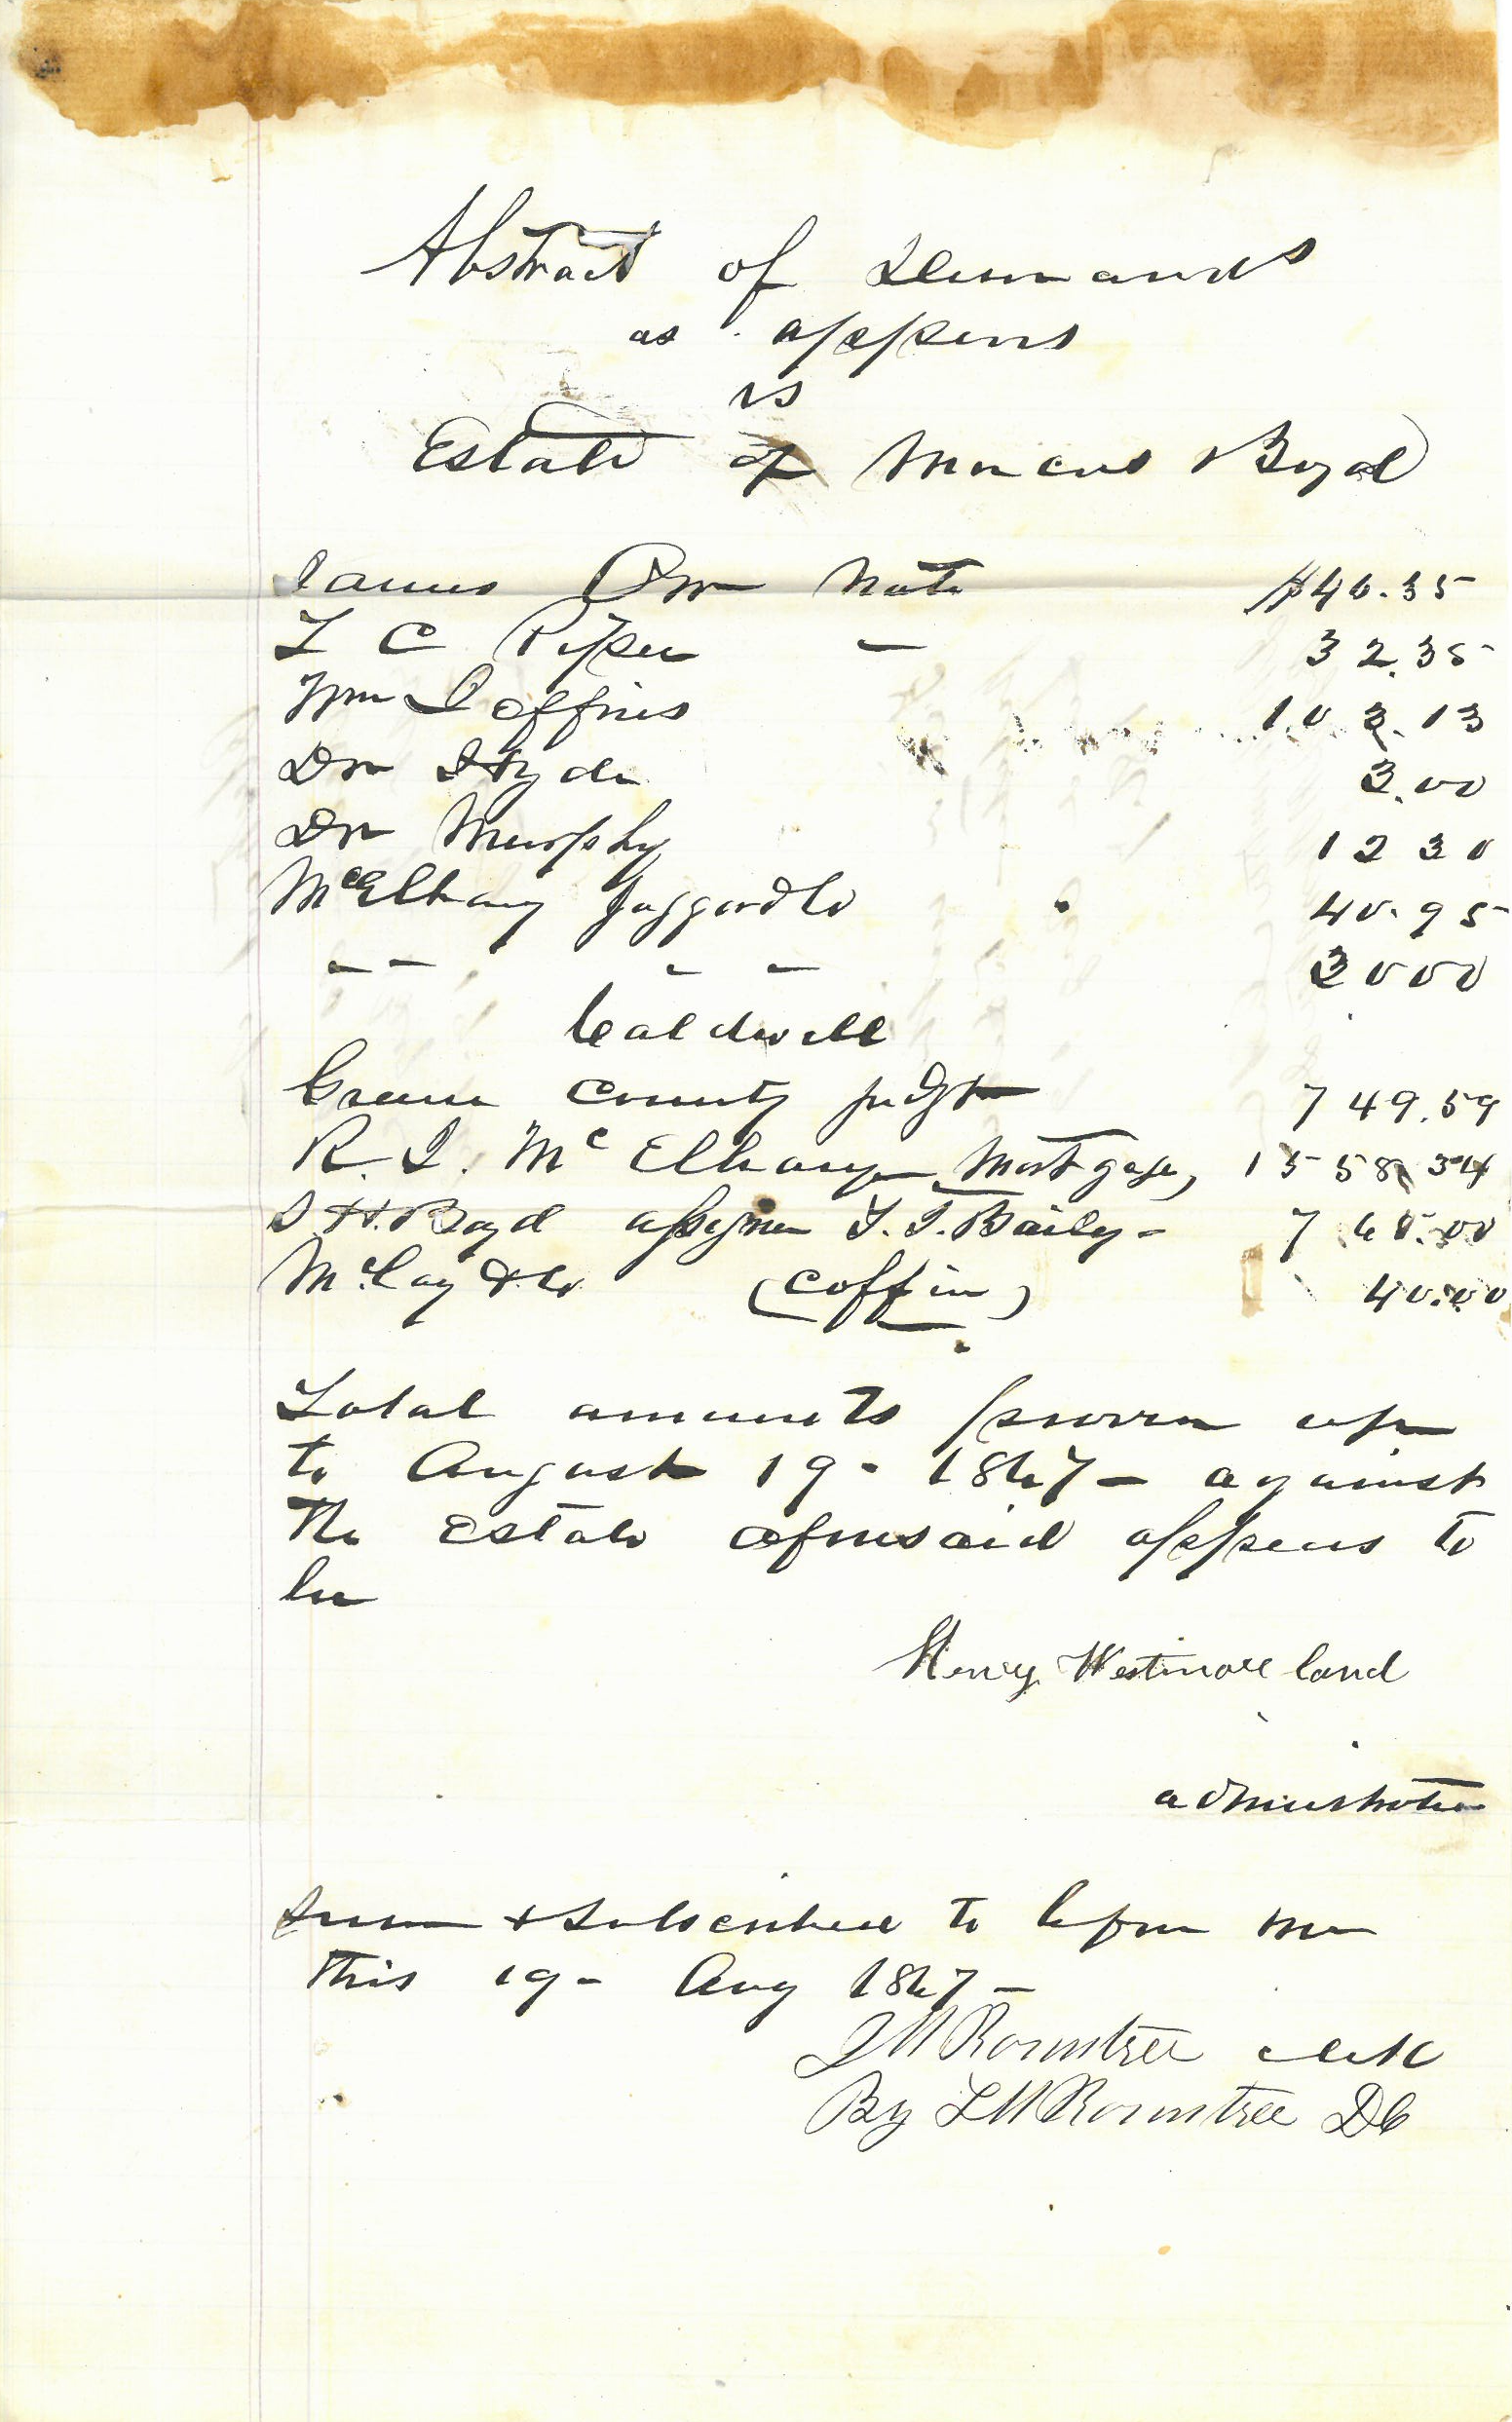 Abstract of Demands
as appears
vs
Estate of Marcus Boyd
James Orr Note $40.35
T C Piper — 32.35
Wm Jeffries 103.13
Dr Hyde 3.00
Dr Murphy 12 30
McElhany Jaggard & Co 40.95
" " " " 3000
Caldwell
Greene County Judgt 749.59
R. J. McElhany Mortgage, 1558.34
S H. Boyd assignee T. J. Baily - 760.00
McCoy & Co (coffin) 40.00
Total amounts proven up
to August 19 - 1867 - against
the estate aforesaid appears to
be
Henry Westmoreland
administrator
Sworn & Subscribed to before me
this 19 - Aug 1867 -
J M Rountree Clerk
By L M Rountree DC